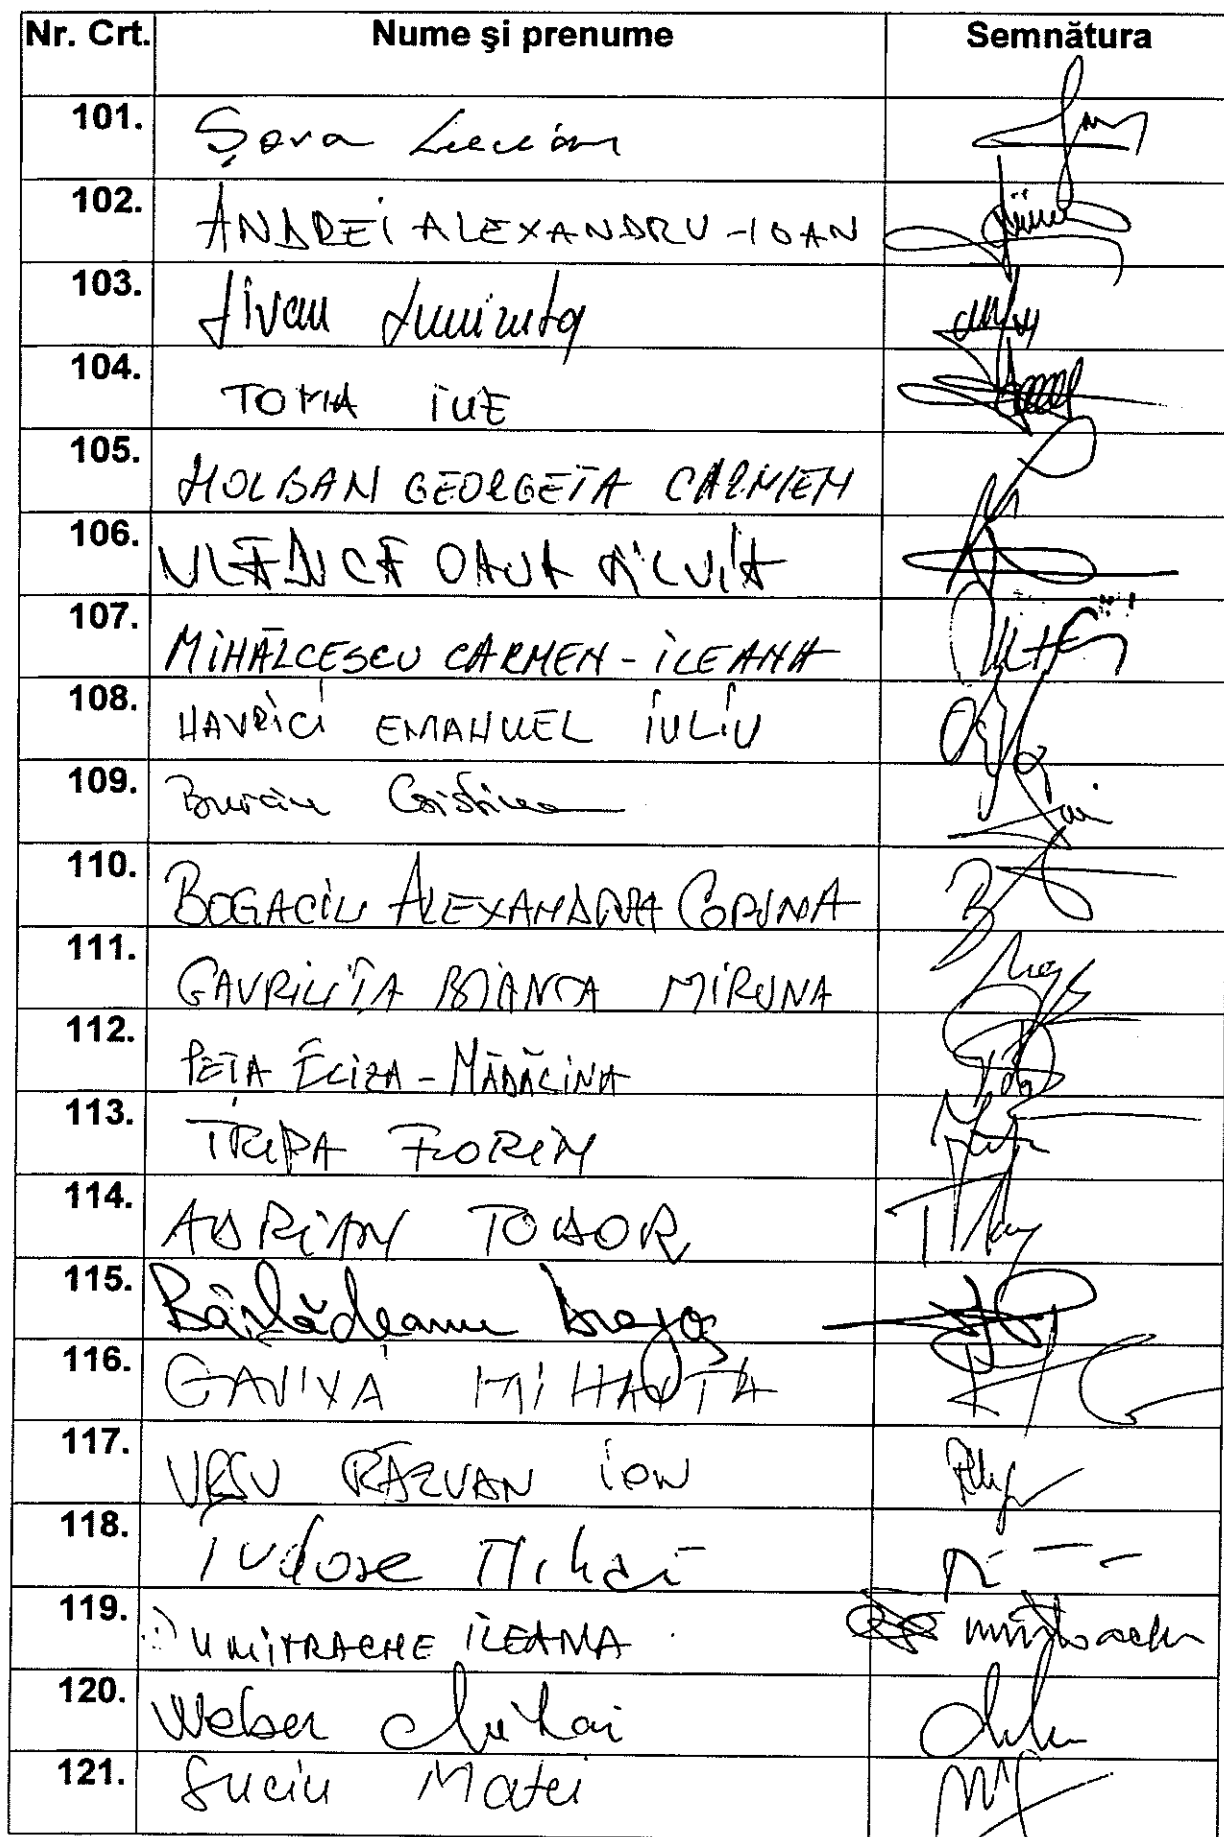 Nr. Crt. Nume şi prenume Semnătura
101. Şova Lucian
102. ANDREI ALEXANDRU-IOAN
103. Jivan Luminița
104. TOMA ILIE
105. HOLBAN GEORGETA CARMEN
106. VLĂDUCĂ OANA SILVIA
107. MIHĂLCESCU CARMEN-ILEANA
108. HAVRICI EMANUEL IULIU
109. Burciu Cristina
110. BOGACIU ALEXANDRA CORINA
111. GAVRILIȚA BIANCA MIRUNA
112. PEȚA ELIZA-MĂDĂLINA
113. TRIPA FLORIN
114. ADRIAN TODOR
115. Bârlădeanu Dragoș
116. MIHAIȚĂ
117. URSU RĂZVAN ION
118. Tudose Mihai
119. DUMITRACHE ILEANA
120. Weber Mihai
121. Suciu Matei